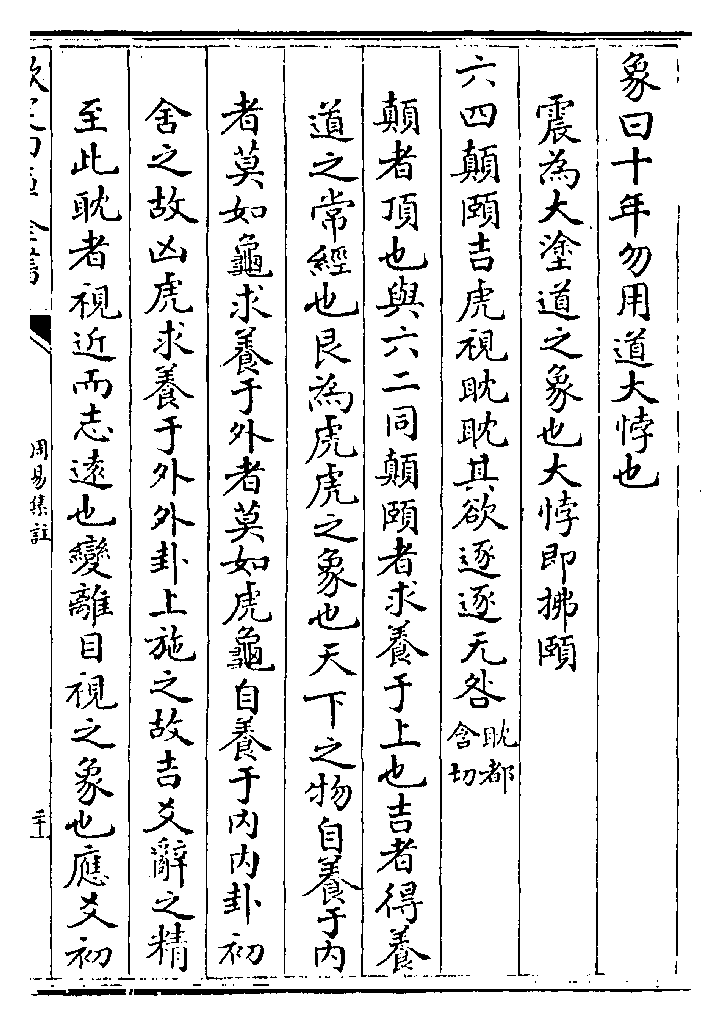 象曰十年勿用道大悖也
震為大塗道之象也大悖即拂頤
六四顛頤吉虎視眈眈其欲逐逐无咎眈都含切
顛者頂也與六二同顛頤者求養于上也吉者得養
道之常經也艮為虎虎之象也天下之物自養于内
者莫如龜求養于外者莫如虎龜自養于内内卦初
舍之故凶虎求養于外外卦上施之故吉爻辭之精
至此眈者視近而志遠也變離目視之象也應爻初
周易集註